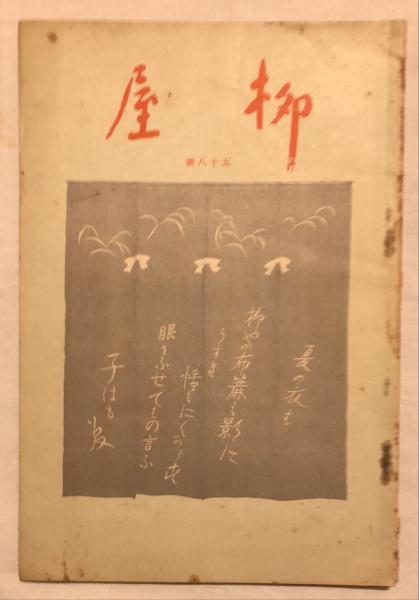 柳屋
五十八號
夏の夜は
柳やの布簾も影に
うすき
情もにくからず
眼をふせてもの言ふ
子はも